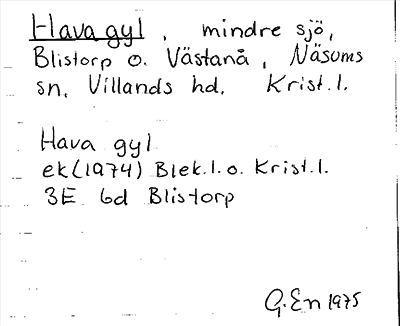 Hava gyl, mindre sjö,
Blistorp o. Västanå, Näsums
sn, Villands hd. Krist.l.
Hava gyl
ek(1974) Blek.l.o. Krist.l.
3E 6d Blistorp
G.En 1975